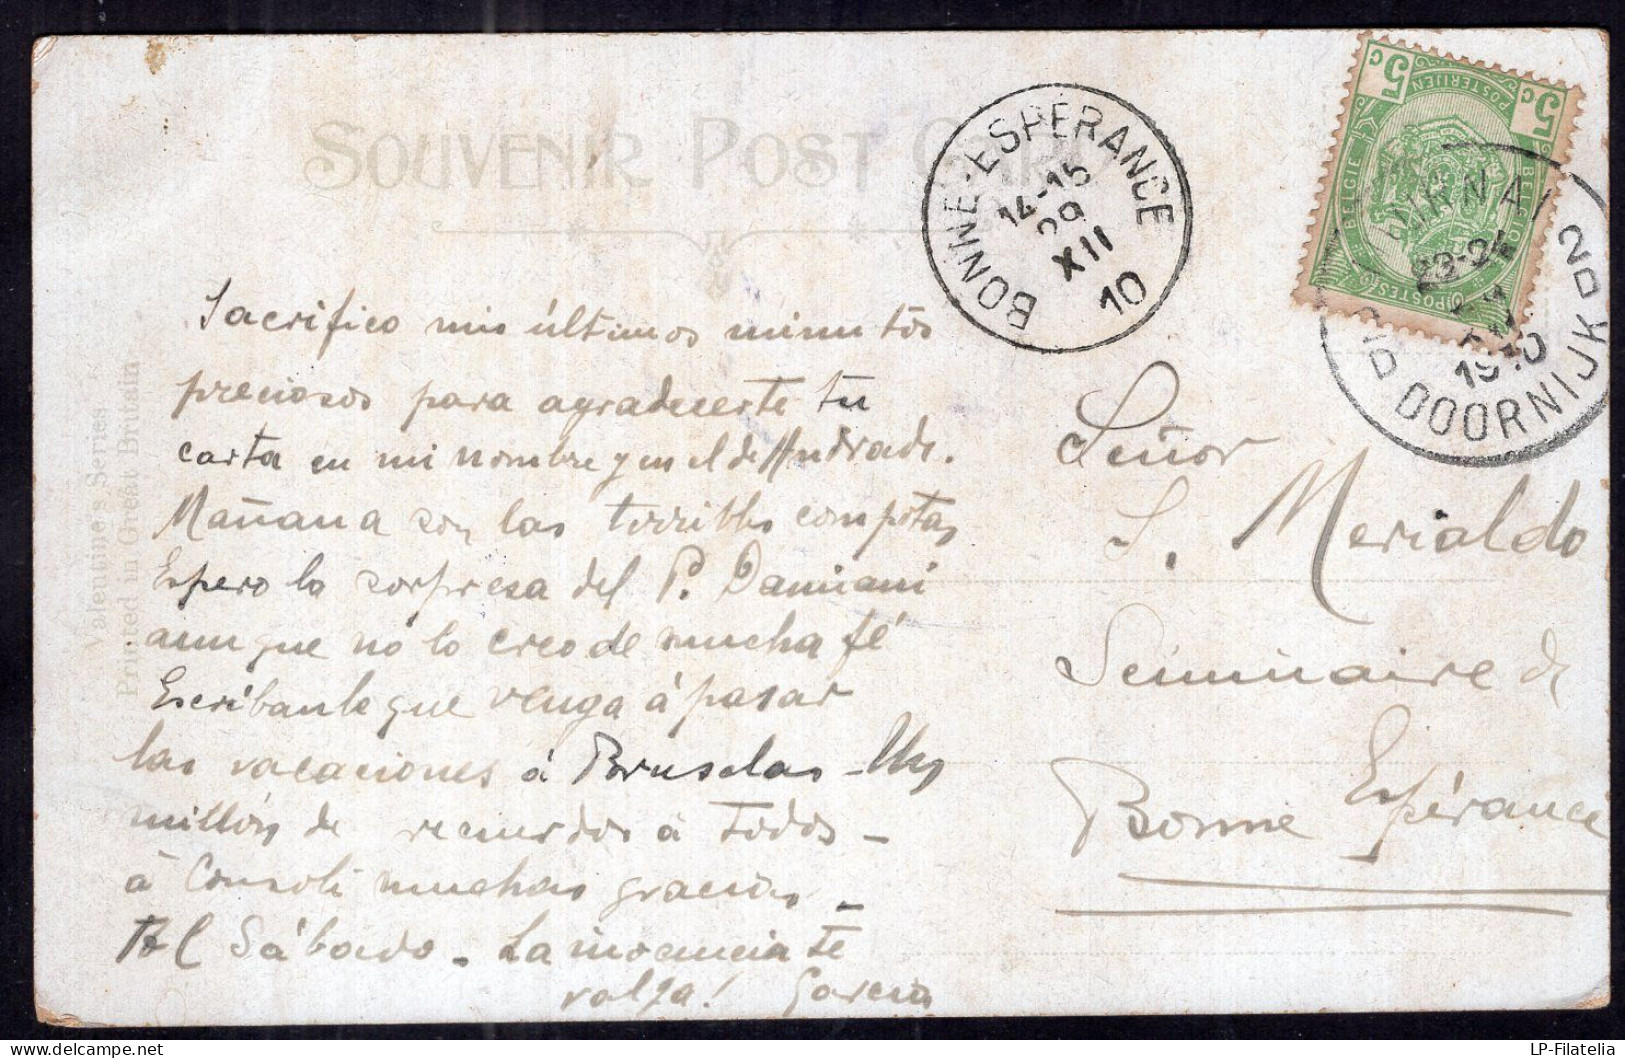 SOUVENIR POST CARD
Valentine's Series
Printed in Great Britain
BONNE-ESPERANCE
14-15
29
XII
10
5c 5c
POSTERIJEN
BELGIE BELGIQUE
POSTES
TOURNAI
23-24
1910
2D DOORNIJK 2D
Sacrifico mis últimos minutos
preciosos para agradecerte tu
carta en mi nombre y en el de Andrade.
Mañana son las terribles compotas
Espero la sorpresa del P. Damiani
aunque no lo creo de mucha fé
Escríbanle que venga á pasar
las vacaciones á Bruselas - Un
millón de recuerdos á todos -
á Consoli muchas gracias -
Hel Sábado - La inocencia te
valga! García
Señor
S. Merialdo
Séminaire de
Bonne Espérance
LP-Filatelia